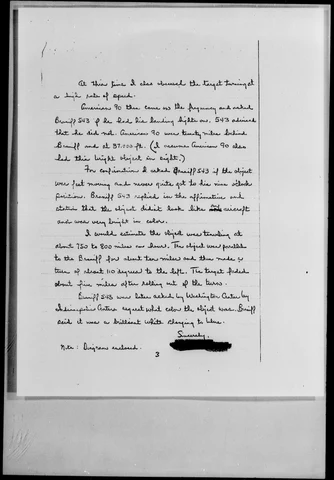 At this time I also observed the target turning at
a high rate of speed.
American 90 then came on the frequency and asked
Braniff 543 if he had his landing lights on. 543 advised
that he did not. American 90 was twenty miles behind
Braniff and at 37,000 ft. (I assume American 90 also
had this bright object in sight.)
For confirmation I asked Braniff 543 if the object
was fast moving and never quite got to his nine o'clock
position. Braniff 543 replied in the affirmative and
stated that the object didn't look like aircraft
and was very bright in color.
I would estimate the object was traveling at
about 750 to 800 miles an hour. The object was parallel
to the Braniff for about ten miles and then made a
turn of about 110 degrees to the left. The target faded
about five miles after rolling out of the turn.
Braniff 543 was later asked by Washington Center by
Indianapolis Centers request what color the object was. Braniff
said it was a brilliant white changing to blue.
Sincerely,
Note: Diagram enclosed.
3